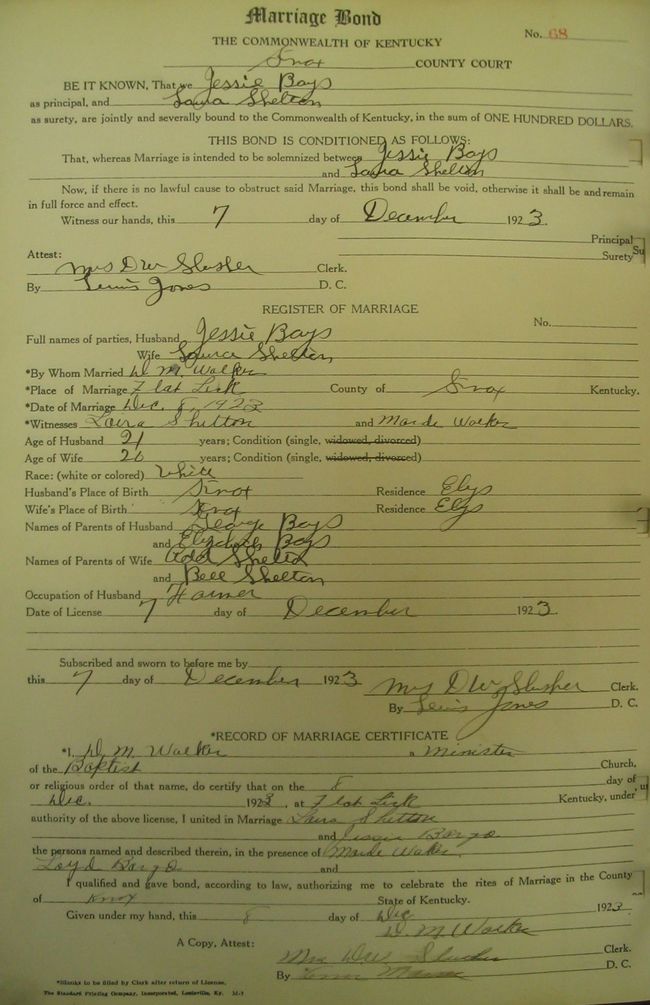 Marriage Bond
No. 68
THE COMMONWEALTH OF KENTUCKY
Knox COUNTY COURT
BE IT KNOWN, That we Jessie Bays
as principal, and Laura Shelton
as surety, are jointly and severally bound to the Commonwealth of Kentucky, in the sum of ONE HUNDRED DOLLARS.
THIS BOND IS CONDITIONED AS FOLLOWS:
That, whereas Marriage is intended to be solemnized between Jessie Bays
and Laura Shelton
Now, if there is no lawful cause to obstruct said Marriage, this bond shall be void, otherwise it shall be and remain
in full force and effect.
Witness our hands, this 7 day of December 1923.
Principal
Surety
Su
Attest:
Mrs DW Slusher Clerk.
By Lewis Jones D. C.
REGISTER OF MARRIAGE
No.
Full names of parties, Husband Jessie Bays
Wife Shelton
*By Whom Married D. M. Walker
*Place of Marriage Flat Lick County of Knox Kentucky.
*Date of Marriage Dec. 8, 1923
*Witnesses Laura Shelton and Maude Walker
Age of Husband 21 years; Condition (single, widowed, divorced)
Age of Wife 20 years; Condition (single, widowed, divorced)
Race: (white or colored) White
Husband's Place of Birth Knox Residence Elys
Wife's Place of Birth Knox Residence Elys
Names of Parents of Husband George Bays
and Elizabeth Bays
Names of Parents of Wife Shelton
and Bell Shelton
Occupation of Husband Farmer
Date of License 7 day of December 1923.
Subscribed and sworn to before me by
this 7 day of December 1923 Mrs DW Slusher Clerk.
By Lewis Jones D. C.
*RECORD OF MARRIAGE CERTIFICATE
*I, D. M. Walker a Minister
of the Baptist Church,
or religious order of that name, do certify that on the 8 day of
Dec. 1923, at Flat Lick Kentucky, under
authority of the above license, I united in Marriage Laura Shelton
and Bargo
the persons named and described therein, in the presence of Maude Walker
Loyd Bargo and
I qualified and gave bond, according to law, authorizing me to celebrate the rites of Marriage in the County
of Knox State of Kentucky.
Given under my hand, this 8 day of Dec 1923
D. M Walker
A Copy, Attest: Mrs DW Slusher Clerk.
By D. C.
*Blanks to be filled by Clerk after return of License.
The Standard Printing Company, Incorporated, Louisville, Ky.